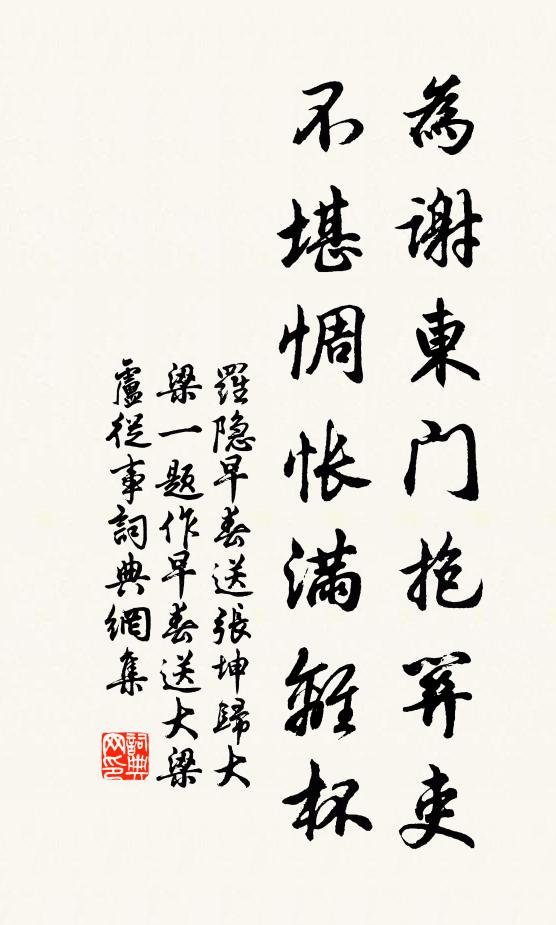 為謝東门抱關吏
不堪惆悵滿離杯
羅隐早春送張坤歸大
梁一題作早春送大梁
盧從事詞典網集
詞典
网印